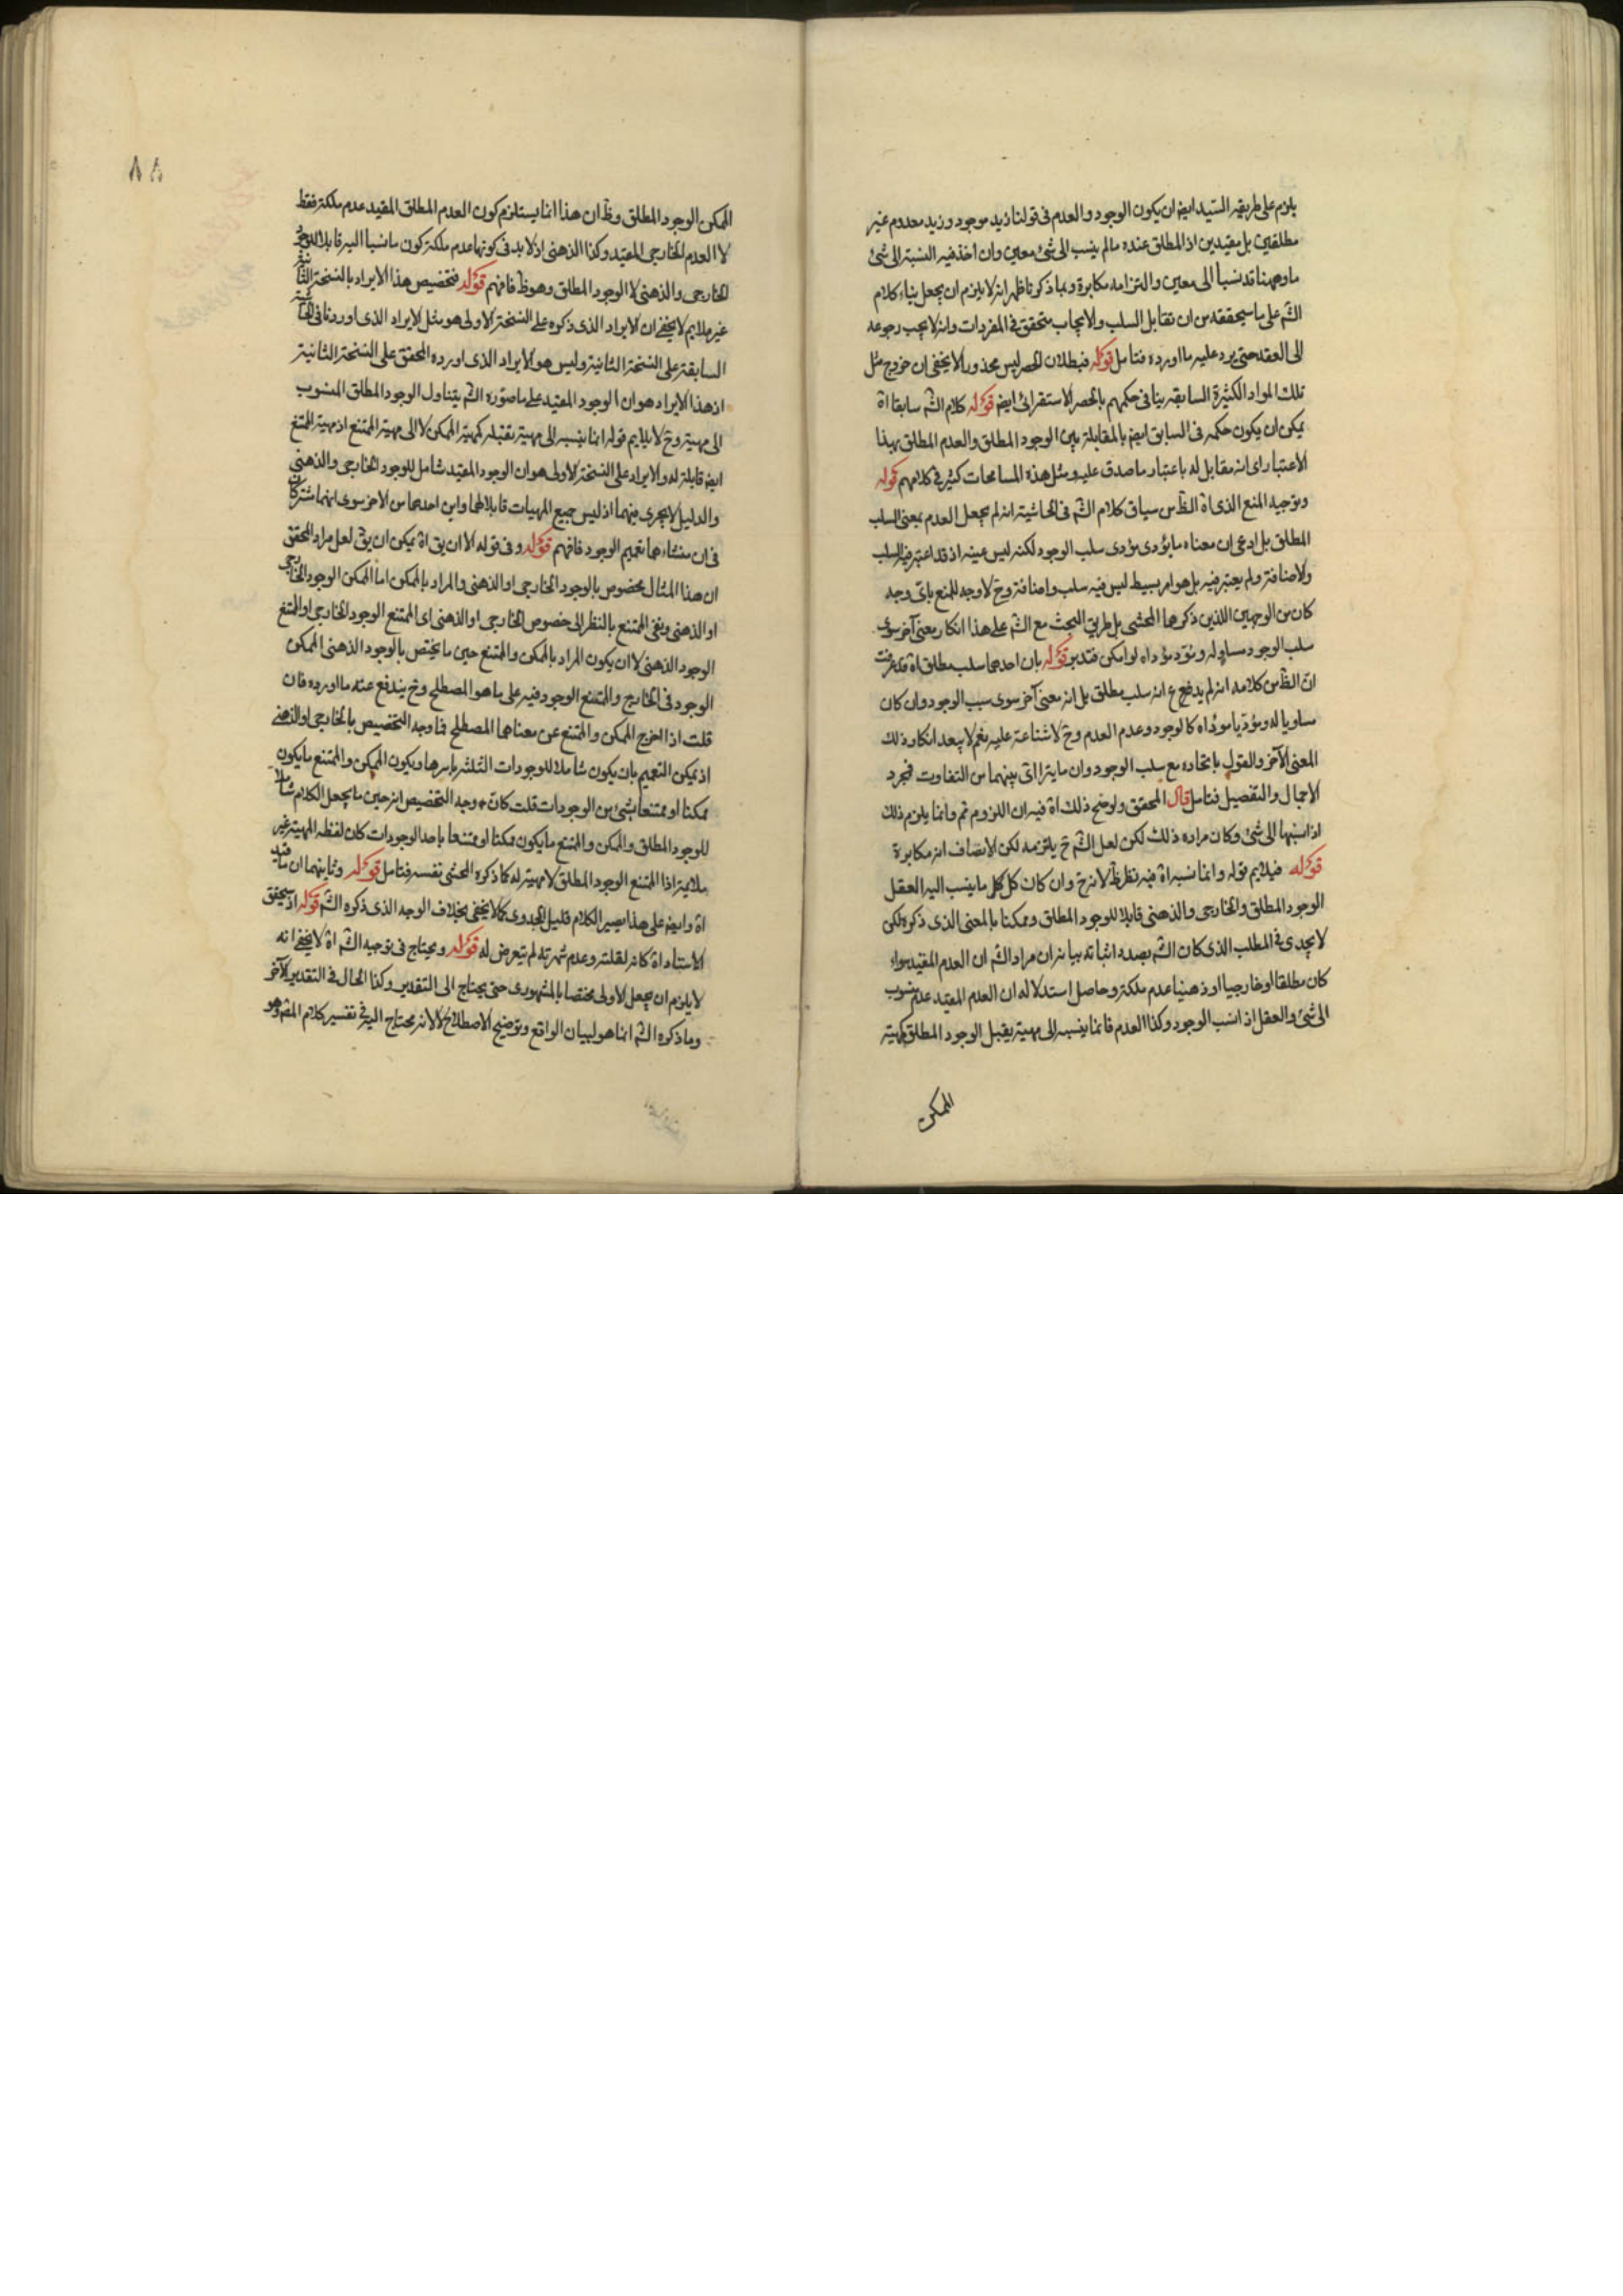 يلزم على طريقه السّيد ايضا ان يكون الوجود والعدم فى قولنا زيد موجود وزيد معدوم غير
مطلقين بل مقيدين اذ المطلق عنده ما لم ينسب الى شئ معين وان اخذ فيه النسبة الى شئ
ما وههنا قد نسبا الى معين والتزامه مكابرة وبما ذكرنا ظهر انه لا يلزم ان يجعل بناء كلام
الشم على ما سيحققه من ان تقابل السلب والايجاب متحقق فى المفردات وانه لا يجب رجوعه
الى العقد حتى يرد عليه ما اورده فتامل قوله فبطلان الحصر ليس محذورا لا يخفى ان خروج مثل
تلك المواد الكثيرة السابقه ينافى حكمهم بالحصر الاستقرائى ايضا قوله كلام الشم سابقا اه
يمكن ان يكون حكمه فى السابق ايضا بالمقابلة بين الوجود المطلق والعدم المطلق بهذا
الاعتبار اى انه مقابل له باعتبار ما صدق عليه ومثل هذه المسامحات كثير فى كلامهم قوله
وتوجيه المنع الذى اه الظ من سياق كلام الشم فى الحاشية انه لم يجعل العدم بمعنى السلب
المطلق بل ادعى ان معناه ما يؤدى مؤدى سلب الوجود لكنه ليس عينه اذ قد اعتبر فيه السلب
والاضافة ولم يعتبر فيه بل هو امر بسيط ليس فيه سلب واضافة وح لا وجه للمنع باى وجه
كان من الوجهين اللذين ذكرها المحشى بل طريق البحث مع الشم على هذا انكار معنى آخر سوى
سلب الوجود مساو له ومؤد مؤداه لو امكن فتدبر قوله بان احدهما سلب مطلق اه قد عرفت
ان الظ من كلامه انه لم يدفع انه سلب مطلق بل انه معنى آخر سوى سبب الوجود وان كان
مساويا له ومؤديا مؤداه كالوجود وعدم العدم وح لا شناعة عليه نعم لا يبعد انكار ذلك
المعنى الآخر والقول باتحاده مع سلب الوجود وان ما يترا اى بينهما من التفاوت فبمجرد
الاجمال والتفصيل فتامل قال المحقق ولوضح ذلك اه فيه ان اللزوم ثم وانما يلزم ذلك
اذا نسبها الى شئ وكان مراده ذلك لكن لعل الشم ح يلتزمه لكن الانصاف انه مكابرة
قوله فيلايم قوله وانما نسبه اه فيه نظر ظ لانه ح وان كان كل كل ما ينسب اليه العقل
الوجود المطلق والخارجى والذهنى قابلا للوجود المطلق وممكنا بالمعنى الذى ذكره لكن
لا يجدى فى المطلب الذى كان الشم بصدد اثباته بيانه ان مراد الشم ان العدم المقيد سواء
كان مطلقا او خارجيا او ذهنيا عدم ملكة وحاصل استدلاله ان العدم المقيد عدم منسوب
الى شئ والعقل اذا نسب الوجود وكذا العدم فانما ينسبه الى مهية يقبل الوجود المطلق كمهية
الممكن
٨٨
الممكن الوجود المطلق وظ ان هذا انما يستلزم كون العدم المطلق المقيد عدم ملكة فقط
لا العدم الخارجى المقيد وكذا الذهنى اذ لا بد فى كونهما عدم ملكة كون ما نسبا اليه قابلا للوجود
الخارجى والذهنى لا الوجود المطلق وهو ظ فافهم قوله فتخصيص هذا الايراد بالنسخة الثانية
غير ملايم لا يخفى ان الايراد الذى ذكره على النسخة الاولى هو مثل الايراد الذى اوردنا فى الحاشية
السابقة على النسخة الثانية وليس هو الايراد الذى اورده المحقق على النسخة الثانية
اذ هذا الايراد هو ان الوجود المقيد على ما صوّره الشم يتناول الوجود المطلق المنسوب
الى مهية وح لا يلايم قوله انما ينسبه الى مهية تقبله كمهية الممكن لا الى مهية الممتنع اذ مهية الممتنع
ايضا قابلة له والايراد على النسخة الاولى هو ان الوجود المقيد شامل للوجود الخارجى والذهنى
والدليل لا يجرى فيهما اذ ليس جميع المهيات قابلا لهما واين احدهما من الاخر سوى انهما مشتركان
فى ان منشاءهما تعميم الوجود فافهم قوله وفى قوله الا ان يق اه يمكن ان يق لعل مراد المحقق
ان هذا المثال مخصوص بالوجود الخارجى او الذهنى والمراد بالممكن اما الممكن الوجود الخارجى
او الذهنى وبقى الممتنع بالنظر الى خصوص الخارجى او الذهنى اى الممتنع الوجود الخارجى او الممتنع
الوجود الذهنى لا ان يكون المراد بالممكن والممتنع حين ما يختص بالوجود الذهنى الممكن
الوجود فى الخارج والممتنع الوجود فيه على ما هو المصطلح وح يندفع عنه ما اورده فان
قلت اذا اخرج الممكن والممتنع عن معناهما المصطلح فما وجه التخصيص بالخارجى او الذهنى
اذ يمكن التعميم بان يكون شاملا للوجودات الثلثة باسرها ويكون الممكن والممتنع ما يكون
ممكنا او ممتنعا بشئ من الوجودات قلت كانّ وجه التخصيص انه حين ما يجعل الكلام شاملا
للوجود المطلق والممكن والممتنع ما يكون ممكنا او ممتنعا باحد الوجودات كان لفظه المهية غير
ملايمة اذا الممتنع الوجود المطلق لا مهية له كما ذكره المحشى نفسه فتامل قوله وثانيهما ان ما قيد
اه وايضا على هذا يصير الكلام قليل الجدوى كما لا يخفى بخلاف الوجه الذى ذكره الشم قوله اذ سيحقق
الاستاد اه كانه لقلته وعدم شهرته لم يتعرض له قوله ويحتاج فى توجيه الشم اه لا يخفى انه
لا يلزم ان يجعل الاولى مختصا بالمشهورى حتى يحتاج الى التقدير وكذا الحال فى التقدير الآخر
وما ذكره الشم انما هو لبيان الواقع وتوضيح الاصطلاح لا لانه محتاج اليه فى تفسير كلام المص وهو